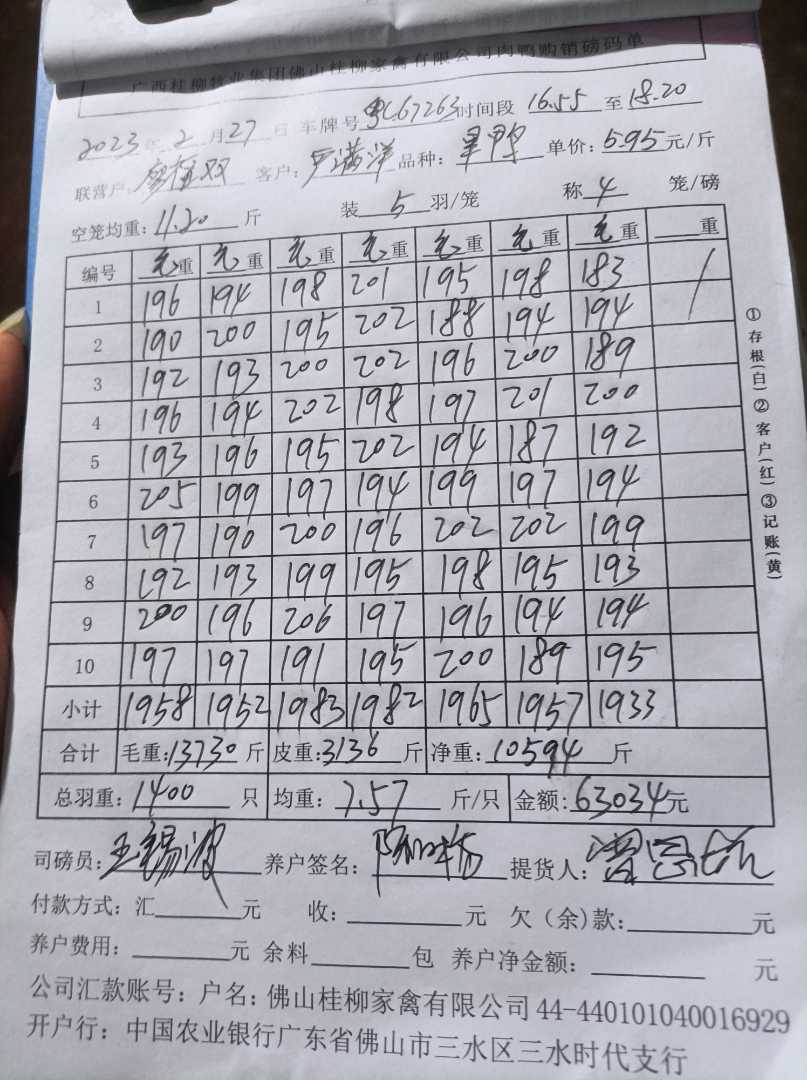 广西桂柳牧业集团佛山桂柳家禽有限公司肉鸭购销磅码单
2023年2月27日 车牌号 粤C67263 时间段 16.55 至 18.20
联营户: 客户: 品种: 单价: 5.95元/斤
空笼均重: 11.20 斤 装 5 羽/笼 称 4 笼/磅
编号 毛重 毛重 毛重 毛重 毛重 毛重 毛重 重
1 196 194 198 201 195 198 183
2 190 200 195 202 188 194 194
3 192 193 200 202 196 200 189
4 196 194 202 198 197 201 200
5 193 196 195 202 194 187 192
6 205 199 197 194 199 197 194
7 197 190 200 196 202 202 199
8 192 193 199 195 198 195 193
9 200 196 206 197 196 194 194
10 197 197 191 195 200 189 195
小计 1958 1952 1983 1982 1965 1957 1933
合计 毛重:13730斤 皮重:3136斤 净重:10594斤
总羽重:1400只 均重:7.57斤/只 金额:63034元
司磅员:王锡波 养户签名: 提货人:
付款方式:汇 元 收: 元 欠(余)款: 元
养户费用: 元 余料 包 养户净金额: 元
公司汇款账号:户名:佛山桂柳家禽有限公司 44-440101040016929
开户行:中国农业银行广东省佛山市三水区三水时代支行
①存根(白)②客户(红)③记账(黄)